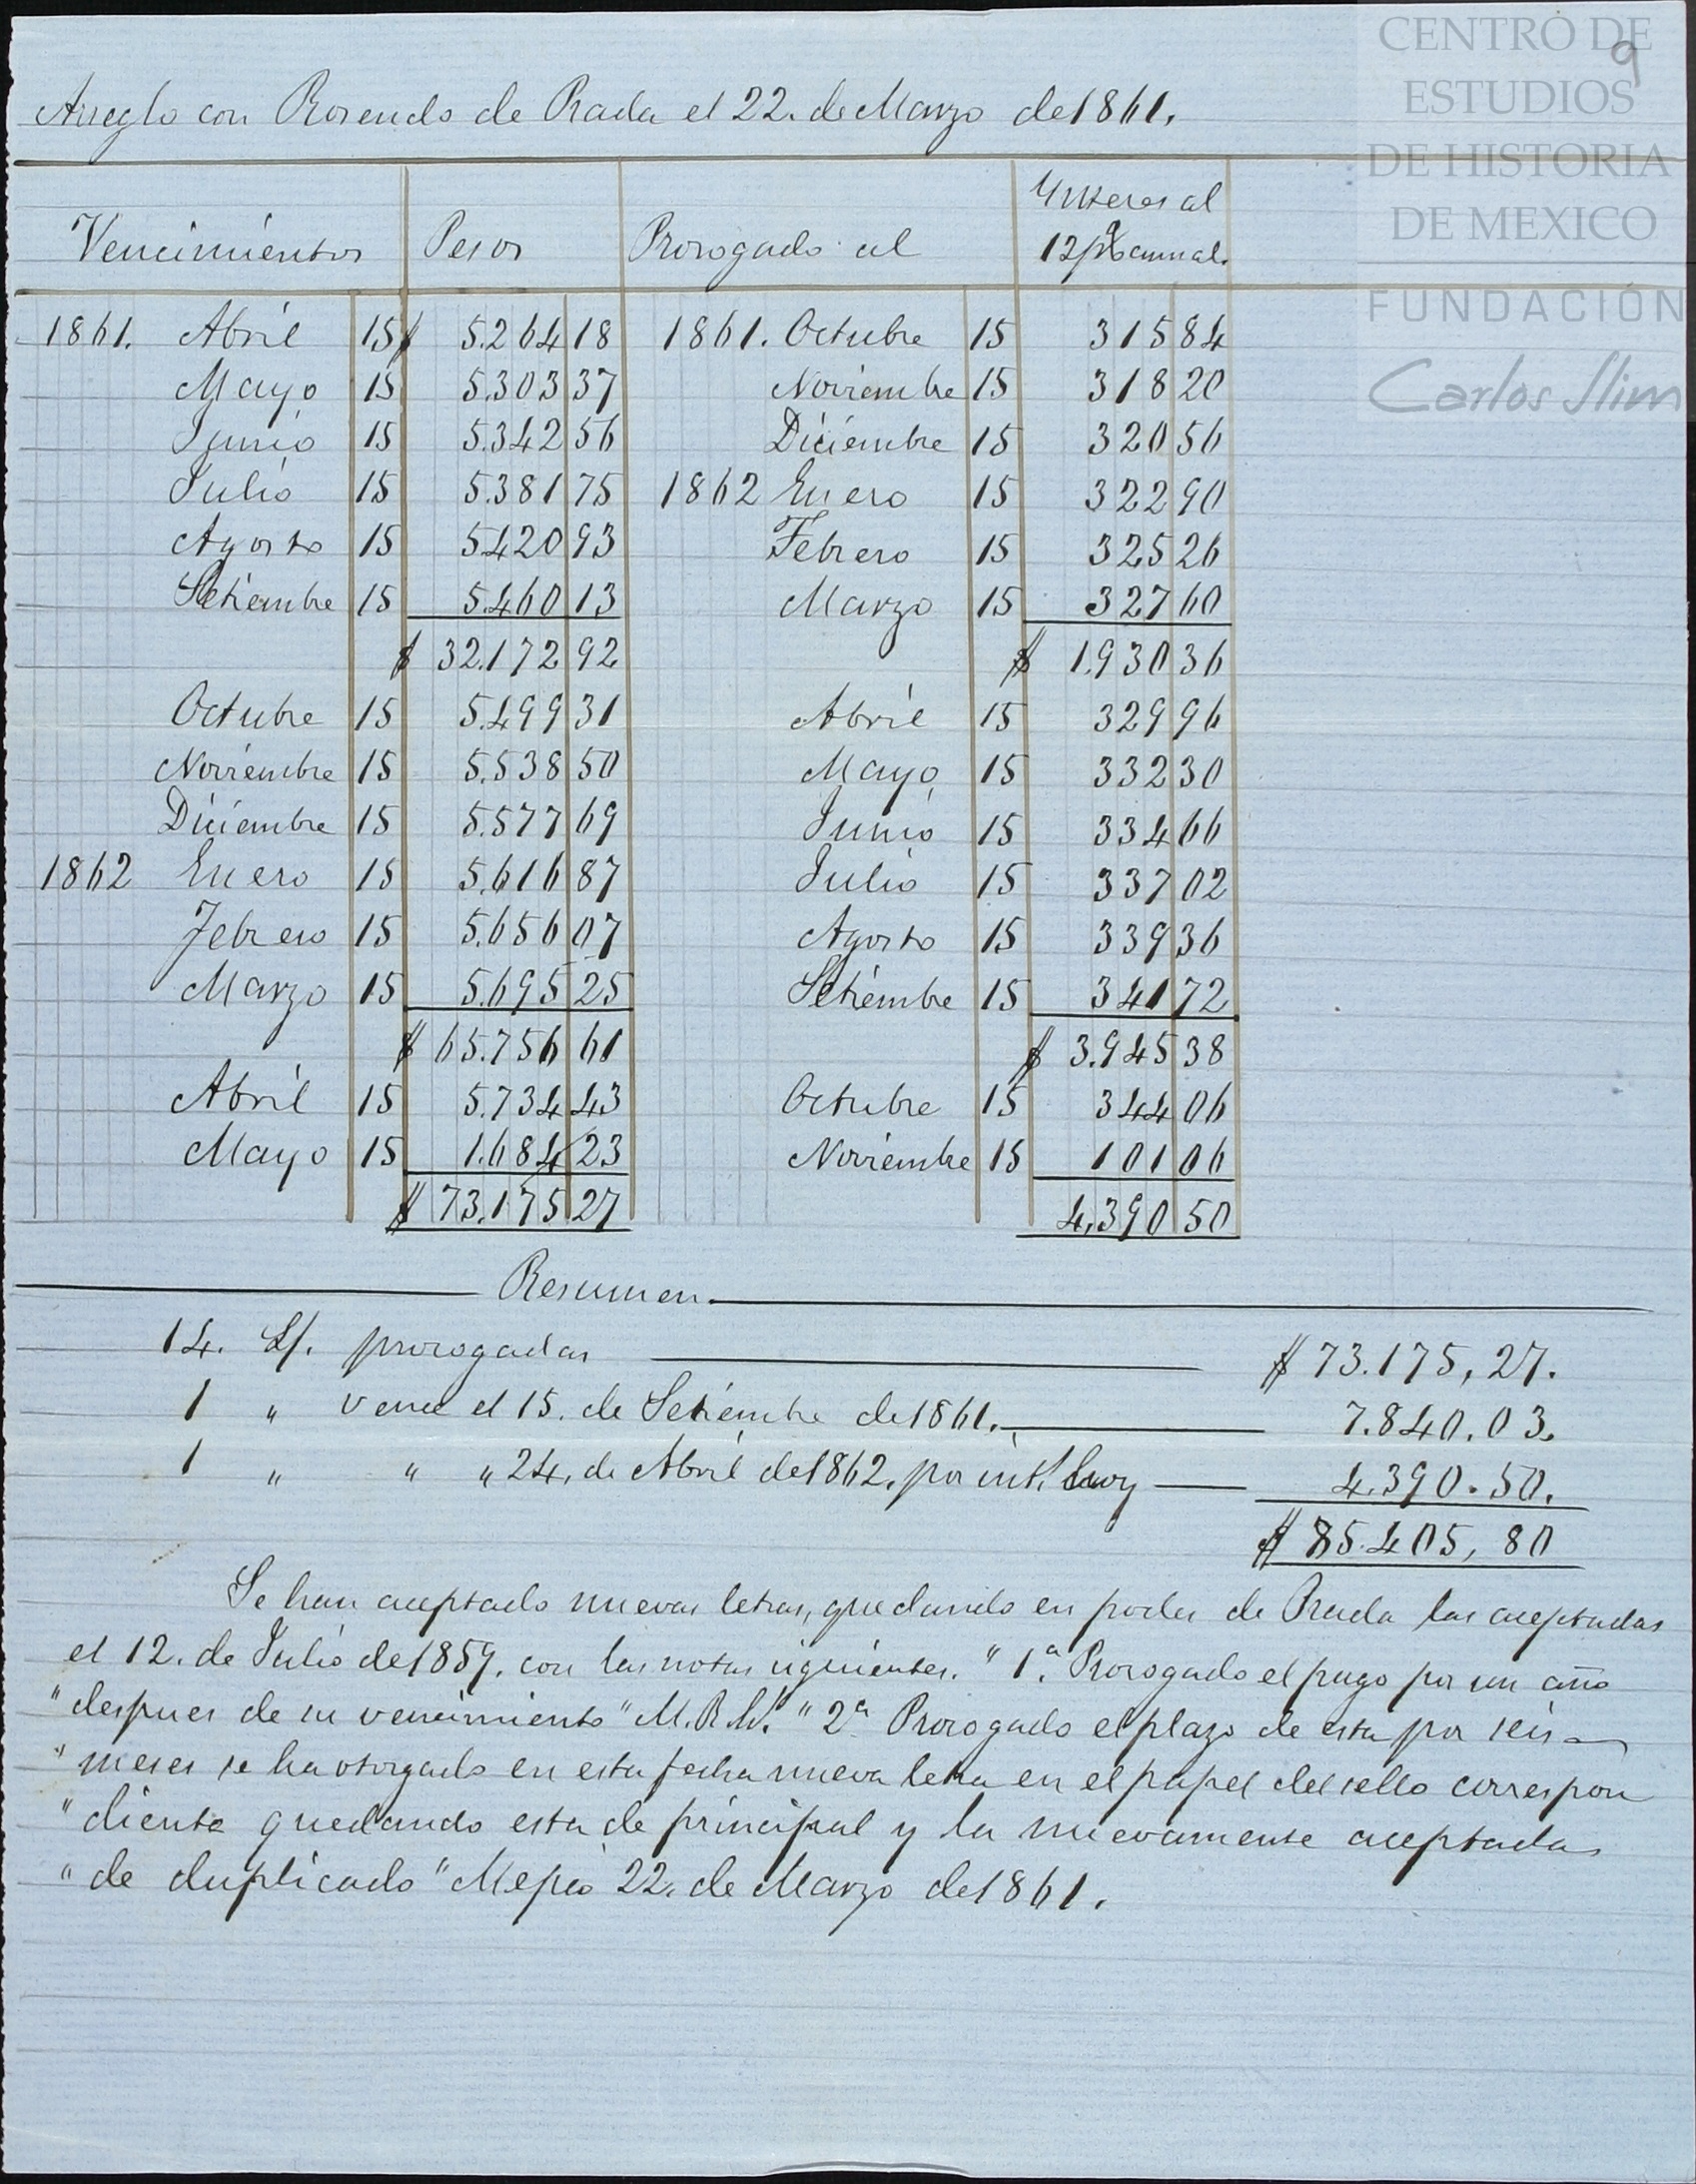 CENTRO DE
ESTUDIOS
DE HISTORIA
DE MEXICO
FUNDACIÓN
Carlos Slim
9
Arreglo con Rosendo de Prada el 22. de Marzo de 1861.
Vencimientos Pesos Prorogado al Interes al 12 p% anual.
1861. Abril 15 $ 5.264 18 1861. Octubre 15 315 84
Mayo 15 5.303 37 Noviembre 15 318 20
Junio 15 5.342 56 Diciembre 15 320 56
Julio 15 5.381 75 1862 Enero 15 322 90
Agosto 15 5.420 93 Febrero 15 325 26
Setiembre 15 5.460 13 Marzo 15 327 60
$ 32.172 92 $ 1.930 36
Octubre 15 5.499 31 Abril 15 329 96
Noviembre 15 5.538 50 Mayo 15 332 30
Diciembre 15 5.577 69 Junio 15 334 66
1862 Enero 15 5.616 87 Julio 15 337 02
Febrero 15 5.656 07 Agosto 15 339 36
Marzo 15 5.695 25 Setiembre 15 341 72
$ 65.756 61 $ 3.945 38
Abril 15 5.734 43 Octubre 15 344 06
Mayo 15 1.684 23 Noviembre 15 101 06
$ 73.175 27 4,390 50
Resumen
14. L/. prorogadas $ 73.175,27.
1 " vence el 15. de Setiembre de 1861. 7.840.03.
1 " " " 24. de Abril de 1862. por int. 4.390.50.
$ 85.405,80
Se han aceptado nuevas letras, quedando en poder de Prada las aceptadas
el 12. de Julio de 1859. con las notas siguientes. " 1.a Prorogado el pago por un año
" despues de su vencimiento " " 2a Prorogado el plazo de esta por seis
" meses se ha otorgado en esta fecha nueva letra en el papel del sello correspon
" diente quedando esta de principal y la nuevamente aceptada
" de duplicado " Mejico 22. de Marzo de 1861.